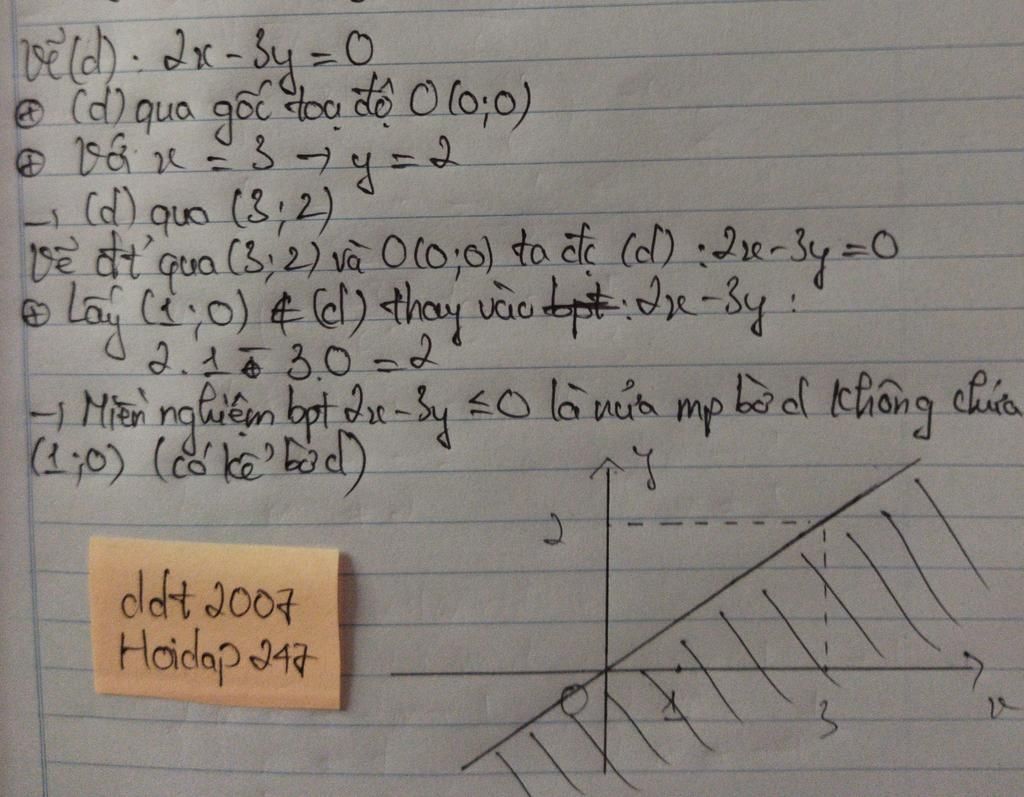 Vẽ (d): 2x - 3y = 0
⊕ (d) qua gốc toạ độ O(0;0)
⊕ Với x = 3 → y = 2
→ (d) qua (3;2)
Vẽ đt qua (3;2) và O(0;0) ta đc (d): 2x - 3y = 0
⊕ Lấy (1;0) ∉ (d) thay vào bpt: 2x - 3y:
2.1 - 3.0 = 2
→ Miền nghiệm bpt 2x - 3y ≤ 0 là nửa mp bờ d không chứa
(1;0) (có kể bờ d)
y
2
ddt 2007
Hoidap 247
O
1
3
x